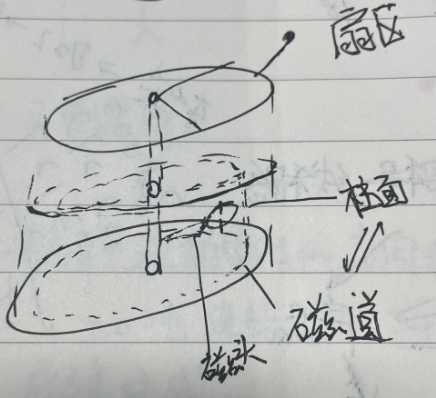 扇区
柱面
磁道
磁头